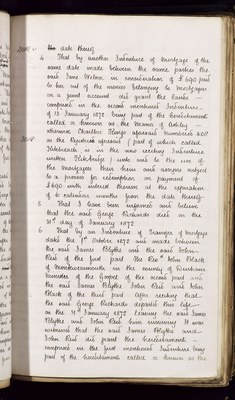 date thereof
4 That by another Indenture of Mortgage of the
same date made between the same parties the
said Jane Nelson in consideration of £690 paid
to her out of the moneys belonging to Mortgagees
on a joint account did grant the lands
comprised in the second mentioned Indenture
of 13 January 1872 being part of the hereditaments
called or known as the Manor of
otherwise
in the aforesaid (part of which called
is in the now reciting Indenture
written) unto and to the use of
the Mortgagees their heirs and assigns subject
to a proviso for redemption on payment of
£690 with interest thereon at the expiration
of 6 calendar months from the date thereof
5 That I have been informed and believe
that the said George Rickards died on the
31st day of January 1872
6 That by an Indenture of Transfer of Mortgage
dated the 1st October 1872 and made between
the said James Blythe and the said John
Reid of the first part The Revd John Black
of in the county of
Minister of the Gospel of the second part and
the said James Blythe John Reid and John
Black of the third part After reciting that
the said George Rickards departed this life
on the 31st January 1872 leaving the said James
Blythe and John Reid him surviving It was
witnessed that the said James Blythe and
John Reid did grant the hereditaments
comprised in the first mentioned Indenture being
part of the hereditaments called or known as the